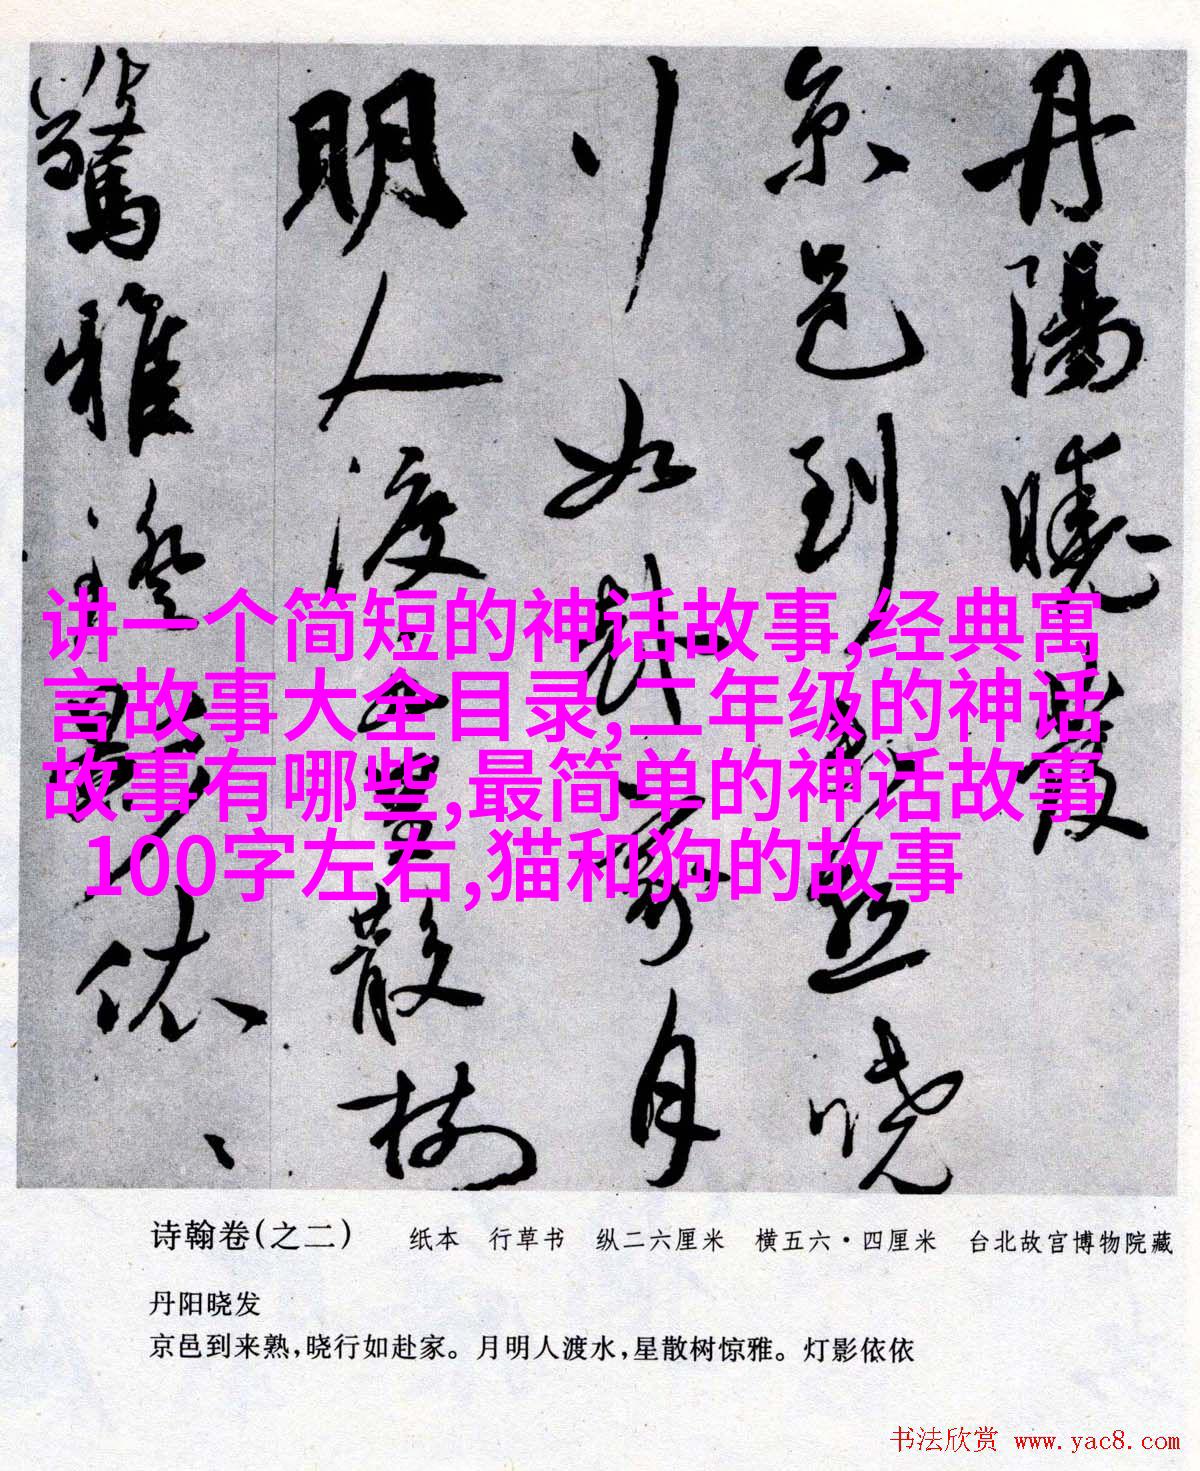 丹陽曉發
京邑到來熟曉
行如赴家月
明人渡水星散樹
驚雅燈影依
讲一个简短的神话故事,经典寓
言故事大全目录,二年级的神话
故事有哪些,最简单的神话故事
100字左右,猫和狗的故事
诗翰卷(之二) 纸本 行草书 纵二六厘米 横五六·四厘米 台北故宫博物院藏
丹阳晓发
京邑到来熟,晓行如赴家。月明人渡水,星散树惊雅。灯影依依
书法欣赏 www.yac8.com